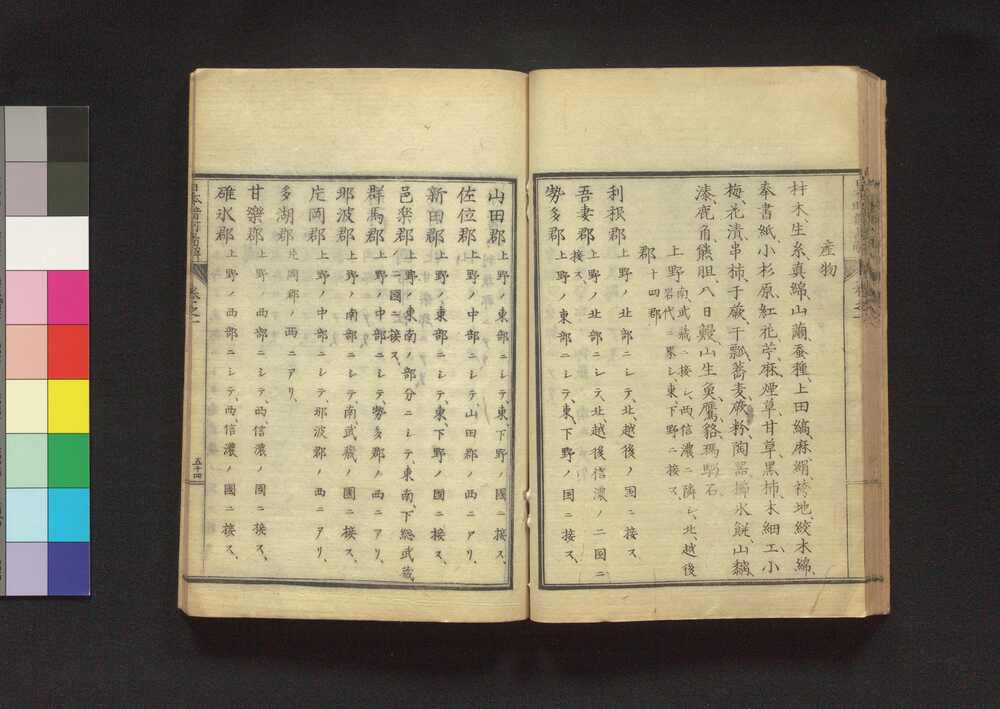 産物
材木、生糸、真綿、山繭、蚕種、上田縞、麻絹、袴地、絞木綿、
奉書紙、小杉原、紅花、苧麻、煙草、甘草、黒柿、木細工、小
梅、花漬、串柿、干蕨、干瓢、蕎麦、蕨粉、陶器、氷餅、山
漆、鹿角、熊胆、八日、山生魚、鷹、貉、瑪瑙石
上野南、武蔵ニ接シ、西、信濃ニ隣シ、北、越後
岩代ニ界シ、東、下野ニ接ス、
郡十四郡
利根郡上野ノ北部ニシテ、北、越後ノ国ニ接ス
吾妻郡上野ノ北部ニシテ、北、越後、信濃ノ二国ニ
接ス、
勢多郡上野ノ東部ニシテ、東、下野ノ国ニ接ス、
山田郡上野ノ東部ニシテ、東、下野ノ國ニ接ス、
佐位郡上野ノ中部ニシテ、山田郡ノ西ニアリ、
新田郡上野ノ東部ニシテ、東、下野ノ國ニ接ス、
邑楽郡上野ノ東南ノ部分ニシテ、東南、下総、武蔵、
ノ二國ニ接ス、
群馬郡上野ノ中部ニシテ、勢多郡ノ西ニアリ、
那波郡上野ノ南部ニシテ、南、武蔵ノ國ニ接ス、
片岡郡上野ノ中部ニシテ、那波郡ノ西ニアリ、
多湖郡片岡郡ノ西ニアリ、
甘樂郡上野ノ西部ニシテ、西、信濃ノ國ニ接ス、
碓氷郡上野ノ西部ニシテ、西、信濃ノ國ニ接ス、
巻之一
五十四